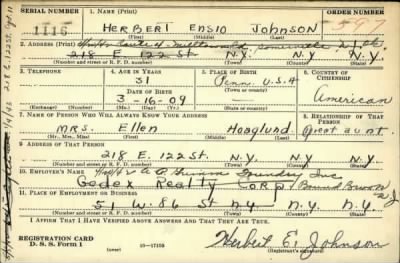 SERIAL NUMBER 1. NAME (Print) ORDER NUMBER
1116 HERBERT ENSIO JOHNSON 597
(First) (Middle) (Last)
2. ADDRESS (Print)
218 E. 122 ST. N.Y. N.Y.
(Number and street or R. F. D. number) (Town) (County) (State)
3. TELEPHONE 4. AGE IN YEARS 5. PLACE OF BIRTH 6. COUNTRY OF CITIZENSHIP
31 Penn.
DATE OF BIRTH (Town or county)
3-16-09 U.S.A American
(Exchange) (Number) (Mo.) (Day) (Yr.) (State or country)
7. NAME OF PERSON WHO WILL ALWAYS KNOW YOUR ADDRESS 8. RELATIONSHIP OF THAT PERSON
MRS. Ellen Hoaglund Great aunt.
(Mr., Mrs., Miss) (First) (Middle) (Last)
9. ADDRESS OF THAT PERSON
218 E. 122 ST. N.Y. N.Y.
(Number and street or R. F. D. number) (Town) (County) (State)
10. EMPLOYER'S NAME
Foundry Inc
Gedex Realty Corp Bound Brook NJ
11. PLACE OF EMPLOYMENT OR BUSINESS
51 W. 86 ST N.Y. N.Y. N.Y.
(Number and street or R. F. D. number) (Town) (County) (State)
I AFFIRM THAT I HAVE VERIFIED ABOVE ANSWERS AND THAT THEY ARE TRUE.
REGISTRATION CARD
D. S. S. Form 1 16—17105 Herbert E. Johnson
(over) (Registrant's signature)